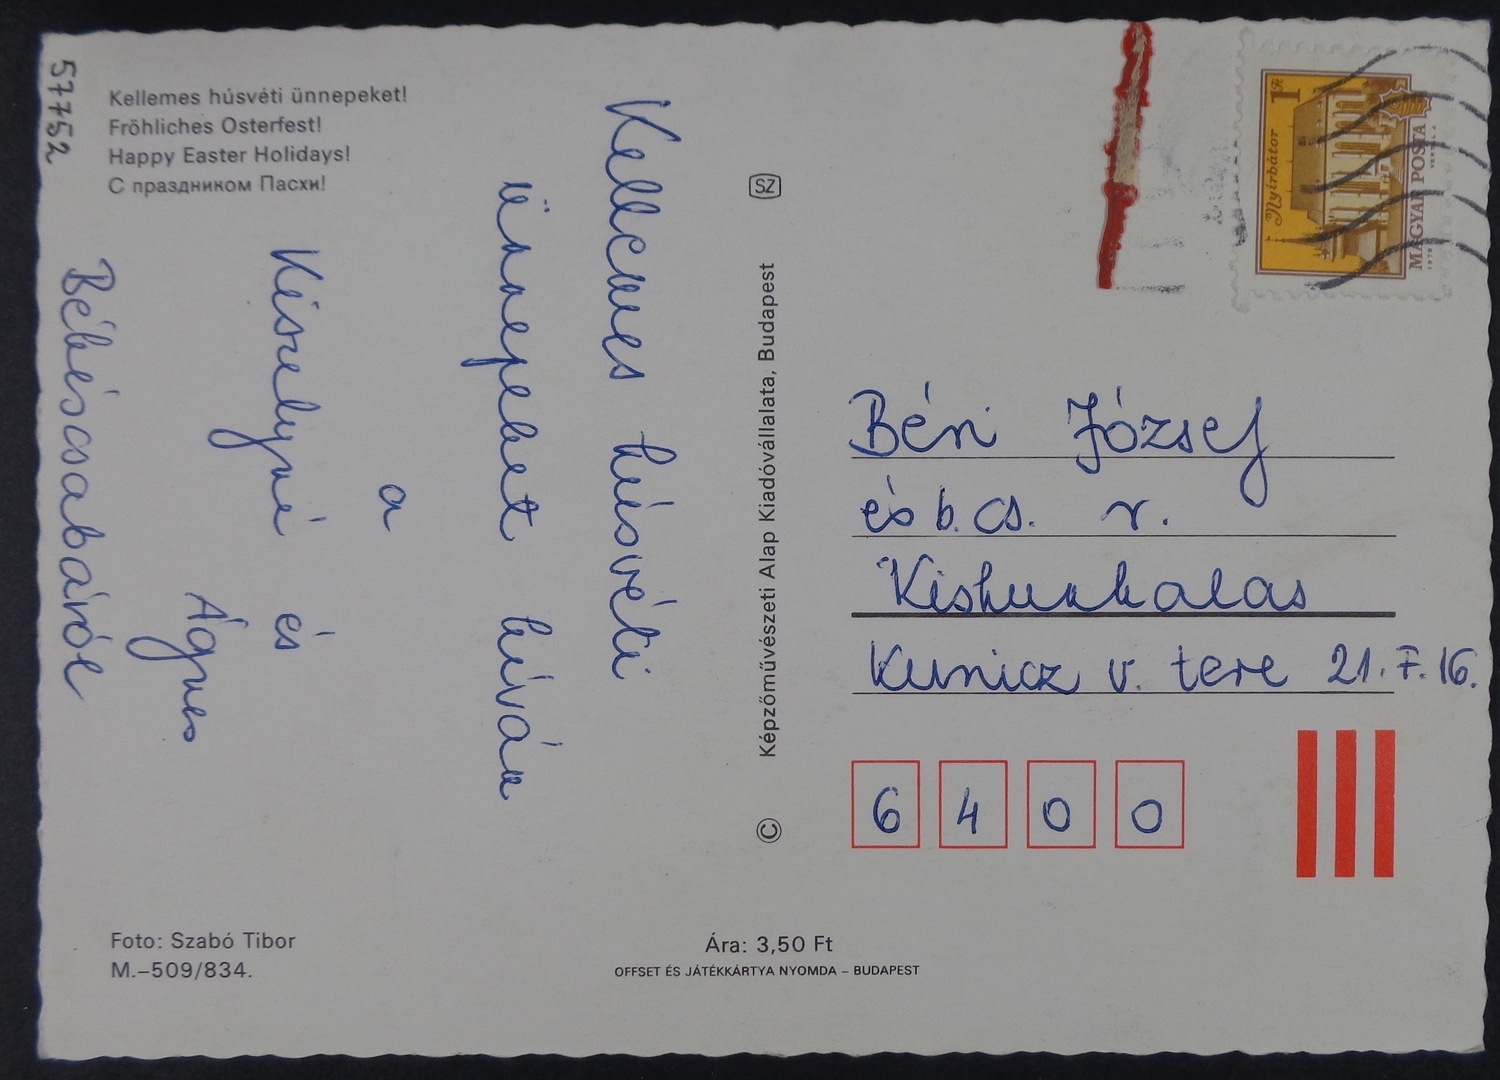 57752
Kellemes húsvéti ünnepeket!
Fröhliches Osterfest!
Happy Easter Holidays!
С праздником Пасхи!
Kellemes húsvéti
ünnepeket kíván
a
Kiszelyné és
Ágnes
Békéscsabáról
Foto: Szabó Tibor
M.–509/834.
SZ
Képzőművészeti Alap Kiadóvállalata, Budapest
©
Ára: 3,50 Ft
OFFSET ÉS JÁTÉKKÁRTYA NYOMDA – BUDAPEST
1 Ft
Nyírbátor
MAGYAR POSTA
Béni József
és b. cs. r.
Kiskunhalas
Kunicz v. tere 21. F. 16.
6 4 0 0